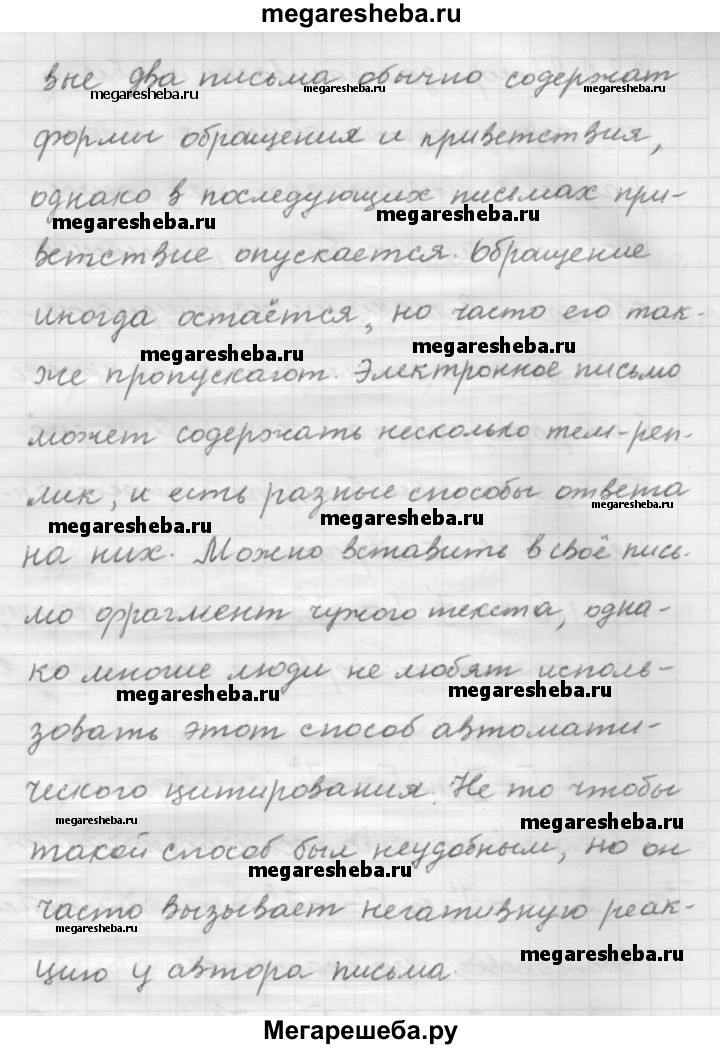 megaresheba.ru
вые два письма обычно содержат
megaresheba.ru megaresheba.ru megaresheba.ru
формы обращения и приветствия,
однако в последующих письмах при-
megaresheba.ru megaresheba.ru
ветствие опускается. Обращение
иногда остаётся, но часто его так-
megaresheba.ru megaresheba.ru
же пропускают. Электронное письмо
может содержать несколько тем-реп-
лик, и есть разные способы ответа
megaresheba.ru megaresheba.ru megaresheba.ru
на них. Можно вставить в своё пись-
мо фрагмент чужого текста, одна-
ко многие люди не любят исполь-
megaresheba.ru megaresheba.ru
зовать этот способ автомати-
ческого цитирования. Не то чтобы
megaresheba.ru megaresheba.ru
такой способ был неудобным, но он
megaresheba.ru
часто вызывает негативную реак-
megaresheba.ru megaresheba.ru
цию у автора письма.
Мегарешеба.ру